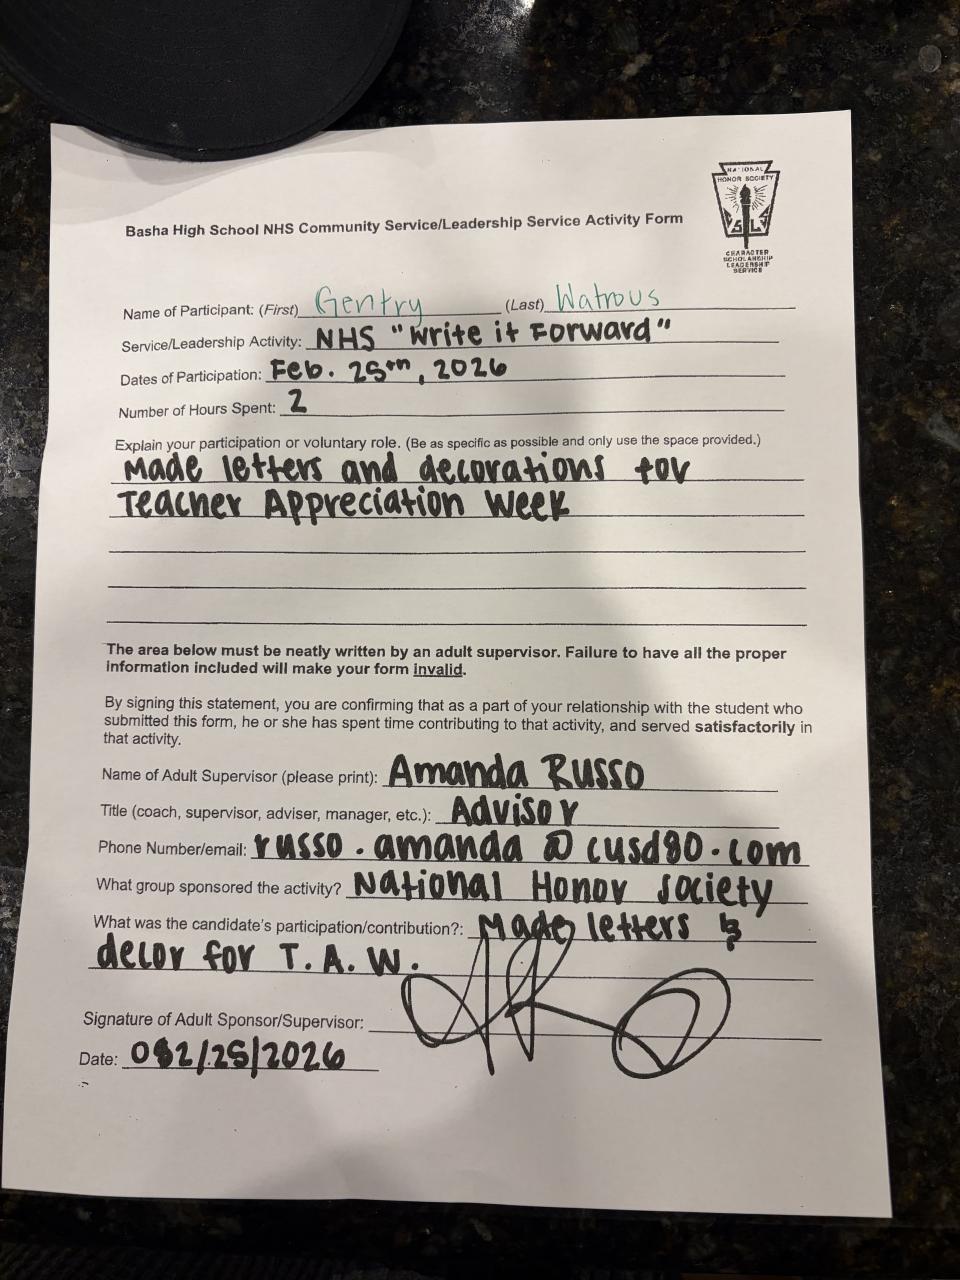 NATIONAL
HONOR SOCIETY
S L
CHARACTER
SCHOLARSHIP
LEADERSHIP
SERVICE
Basha High School NHS Community Service/Leadership Service Activity Form
Name of Participant: (First) Gentry (Last) Watrous
Service/Leadership Activity: NHS "Write it Forward"
Dates of Participation: Feb. 25th, 2026
Number of Hours Spent: 2
Explain your participation or voluntary role. (Be as specific as possible and only use the space provided.)
Made letters and decorations for
Teacher Appreciation Week
The area below must be neatly written by an adult supervisor. Failure to have all the proper
information included will make your form invalid.
By signing this statement, you are confirming that as a part of your relationship with the student who
submitted this form, he or she has spent time contributing to that activity, and served satisfactorily in
that activity.
Name of Adult Supervisor (please print): Amanda Russo
Title (coach, supervisor, adviser, manager, etc.): Advisor
Phone Number/email: russo.amanda@cusd80.com
What group sponsored the activity? National Honor Society
What was the candidate's participation/contribution?: Made letters &
decor for T.A.W.
Signature of Adult Sponsor/Supervisor:
Date: 02/25/2026